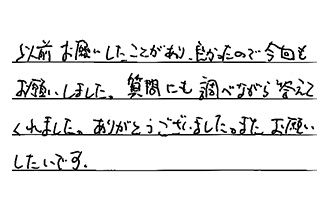 以前お願いしたことがあり、良かったので今回も
お願いしました。質問にも調べながら答えて
くれました。ありがとうございました。また、お願い
したいです。